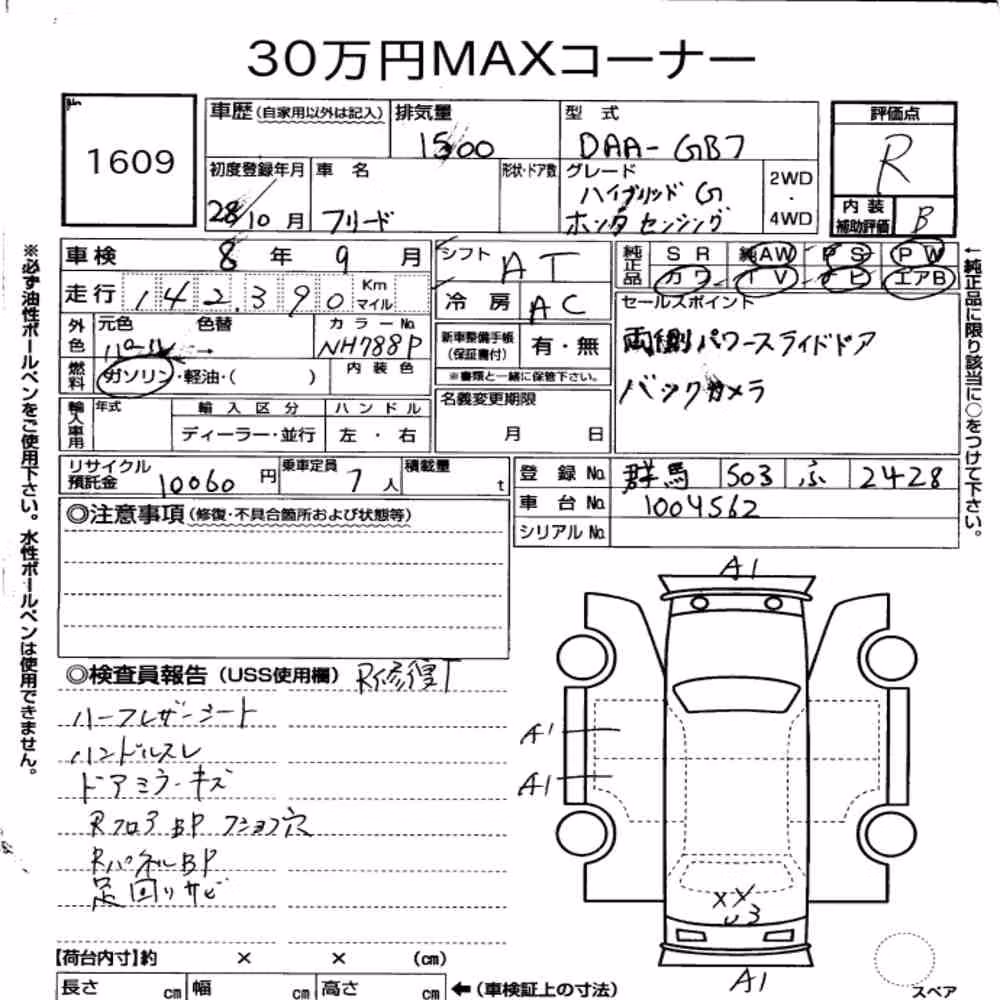 30万円MAXコーナー
1609
車歴(自家用以外は記入) 排気量 1500 型式 DAA-GB7 評価点 R
初度登録年月 28/10月 車名 フリード 形状・ドア数 グレード ハイブリッド G ホンダセンシング 2WD・4WD 内装補助評価 B
車検 8年 9月 シフト AT 純正品 SR 純AW PS PW
カワ TV ナビ エアB
走行 142,390 Km マイル 冷房 AC セールスポイント
外色 元色 パール 色替 → カラーNo. NH788P 新車整備手帳(保証書付) 有・無 両側パワースライドドア
燃料 ガソリン・軽油・( ) 内装色 ※書類と一緒に保管下さい。 バックカメラ
輸入車用 年式 輸入区分 ハンドル 名義変更期限
ディーラー・並行 左・右 月 日
リサイクル預託金 10060円 乗車定員 7人 積載量 t 登録No. 群馬 503 ふ 2428
車台No. 1004562
◎注意事項(修復・不具合箇所および状態等) シリアルNo.
※必ず油性ボールペンをご使用下さい。水性ボールペンは使用できません。
←純正品に限り該当に○をつけて下さい。
◎検査員報告(USS使用欄) R修復T
ハーフレザーシート
ハンドルスレ
ドアミラーキズ
RフロアBP
RパネルBP
足回りサビ
A1
A1
A1
XX
U3
A1
スペア
【荷台内寸】約 × × (cm)
長さ cm 幅 cm 高さ cm ←(車検証上の寸法)